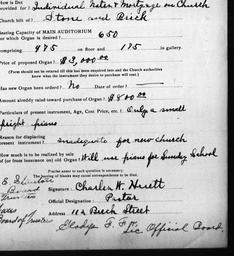 How is Debt
provided for? Individual Notes & Mortgage on Church
Church built of Stone and Brick
Seating Capacity of MAIN AUDITORIUM
for which Organ is desired? 650
comprising 475 on floor and 175 in gallery.
Price of proposed Organ? $3,000.00
(Form should not be entered till this has been enquired into and the Church authorities
know what the instrument they desire to purchase will cost.)
Has new Organ been ordered? No Date of order -
Amount already raised toward purchase of Organ? $800.00
Particulars of present instrument, Age, Cost Price, etc.? Only a small
upright piano
Reason for displacing
present instrument? Inadequate for new church
How much is to be realized by sale
(if from insurance) on old Organ? Will use piano for Sunday School
NO SPACES to be left unanswered.
The leaving of blanks may cause correspondence to be filed.
Signature: Charles W.
Official Designation: Pastor
Address: 112 Beech Street
Gladys Official Board,
Board of Trustees